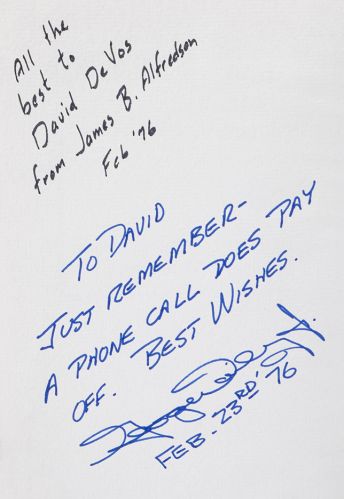 All the
best to
David DeVos
from James B. Alfredson
Feb '76
TO DAVID
JUST REMEMBER-
A PHONE CALL DOES PAY
OFF. BEST WISHES.
FEB. 23RD, '76